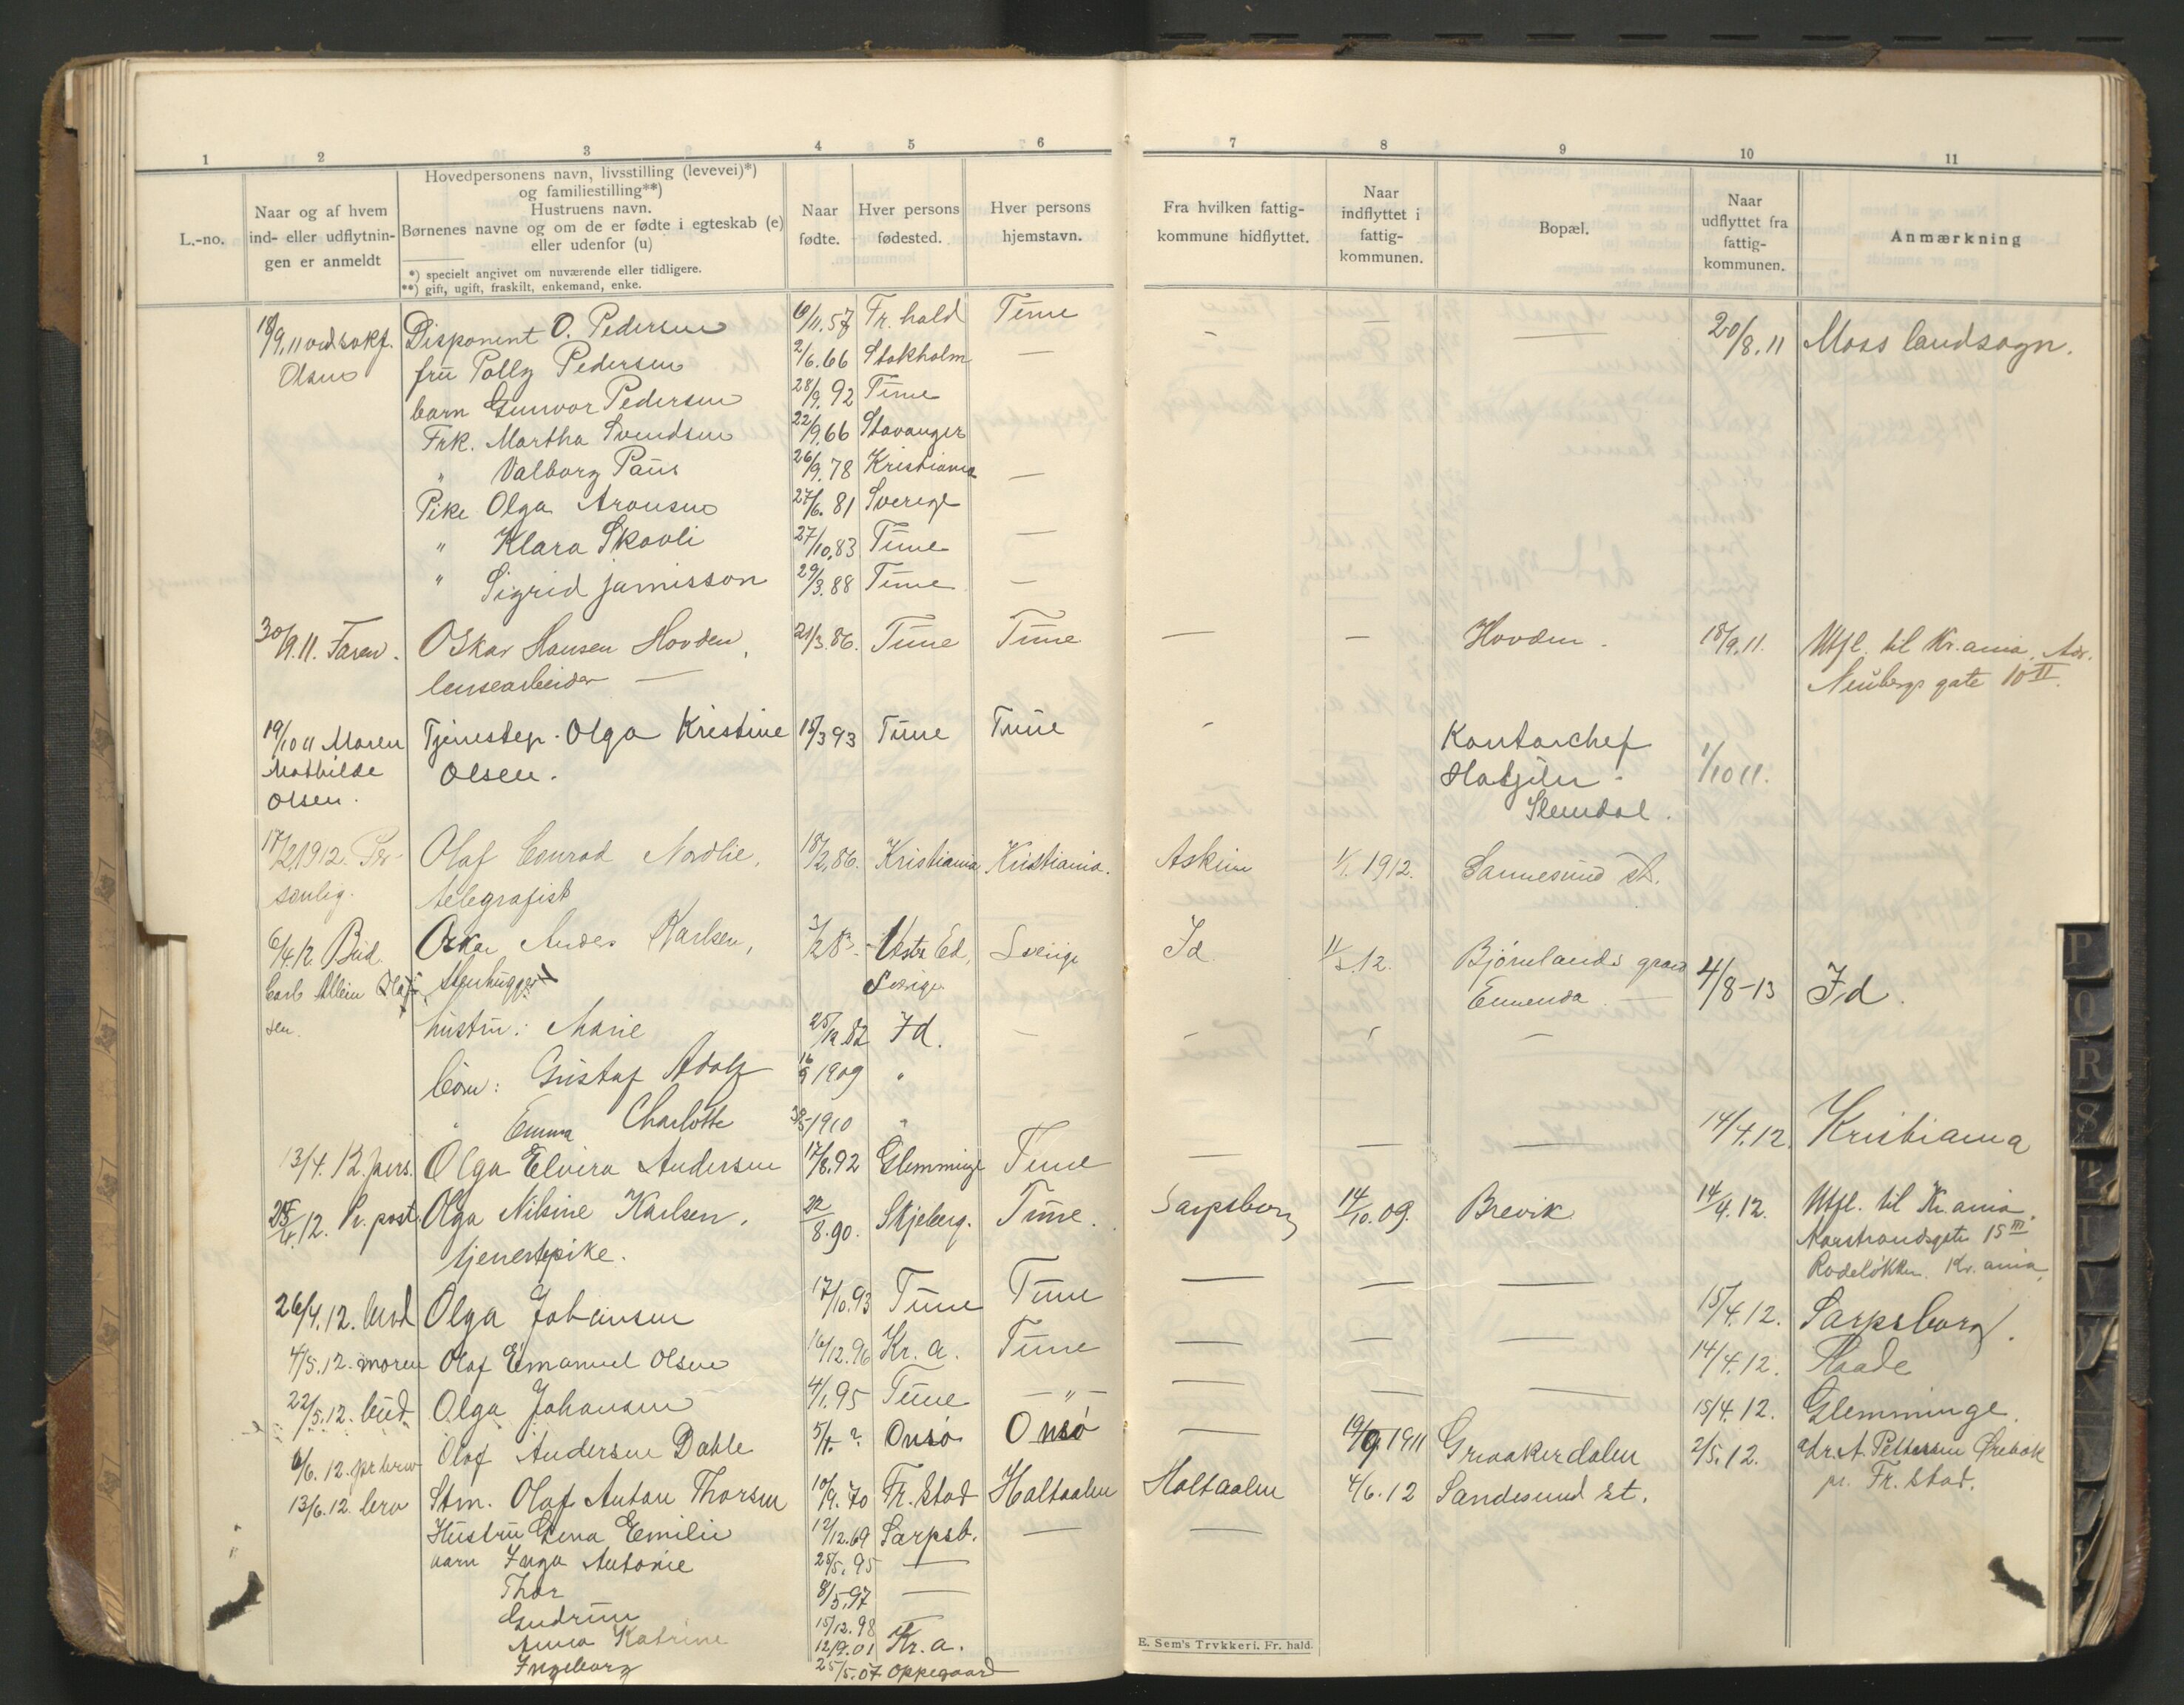 1 2 3 4 5 6 7 8 9 10 11
L.-no.
Naar og af hvem
ind- eller udflytnin-
gen er anmeldt
Hovedpersonens navn, livsstilling (levevei)*)
og familiestilling**)
Hustruens navn.
Børnenes navne og om de er fødte i egteskab (e)
eller udenfor (u)
*) specielt angivet om nuværende eller tidligere.
**) gift, ugift, fraskilt, enkemand, enke.
Naar
fødte.
Hver persons
fødested.
Hver persons
hjemstavn.
Fra hvilken fattig-
kommune hidflyttet.
Naar
indflyttet i
fattig-
kommunen.
Bopæl.
Naar
udflyttet fra
fattig-
kommunen.
Anmærkning
18/9.11 Disponent O. Pedersen 6/11.57 Fr.hald Tune — — — 20/8.11 Moss landsogn.
Olsen fru Polly Pedersen 2/6.66 Stokholm —
barn Gunvor Pedersen 28/9.92 Tune
Frk. Martha Svendsen 22/9.66 Stavanger
" Valborg Paus 26/9.78 Kristiania —
Pike Olga Aronsen 27/6.81 Sverige
" Klara Skovli 27/10.83 Tune —
" Sigrid Jamisson 29/3.88 Tune —
30/9.11. Faren. Oskar Hansen Hovden, 21/3.86. Tune Tune — — Hovden. 18/9.11. Utfl. til Kr.ania. Adr.
lensearbeider — Neubergs gate 10 II.
19/10 11 Maren Tjenestep. Olga Kristine 18/3 93 Tune Tune - Kontorchef
Mathilde Olsen. 1/10 11.
Olsen. Slemdal.
17/2.1912. Per- Olaf Conrad Nordlie, 18/2.86. Kristiania Kristiania. Askim 1/1.1912. Sannesund st.
sonlig. telegrafist
6/4.12. Bud. Oskar Anders Karlsen, Vestr Ed, Sverige Id Bjørnelands
Carl Stenhugger Sverige Ennenda — 4/8-13 Id.
sen. hustru: Marie 25/12 82 Id. — - - —
børn: Gustaf Adolf 16/9 1909 "
" Emma Charlotte 1910 "
13/4.12 pers. Olga Elvira Andersen 17/8.92 Glemminge Tune — — — 14/4.12. Kristiania
12. Pr. post Olga Nilsine Karlsen, 22/8.90. Skjeberg. Tune. Sarpsborg 14/10.09. Brevik 14/4.12. Utfl. til Kr.ania.
tjenestepike. 15 III
Rodeløkken. Kr.ania.
26/4.12. bud Olga Johansen 17/10.93 Tune Tune — — — 15/4.12. Sarpsborg.
4/5.12. moren Olaf Emanuel Olsen 16/12.96 Kr.a. Tune — — 14/4.12. Raade
22/5.12. bud Olga Johansen 4/1.95 Tune —"— — — — 15/4.12. Glemminge.
6/6.12. pr brev Olaf Andersen Dahle 5/1.? Onsø Onsø — 19/9.1911 Greaakerdalen 2/5.12. adr. A. Pettersen Ørebæk
pr. Fr.stad.
13/6.12. brev Stm. Olaf Anton Thorsen 10/9.70 Fr.stad Holtaalen Holtaalen 4/6.12 Sandesund st.
Hustru Gina Emilie 12/12.69 Sarpsb. — —
barn Inga Antonie 25/5.95 —
Thor 8/5.97 —
Gudrun 15/12.98
Anna Katrine 12/9.01 Kr.a.
Ingeborg 25/5.07 Oppegaard
E. Sem's Trykkeri. Fr. hald.
P
Q
R
S
T
U
V
W
X